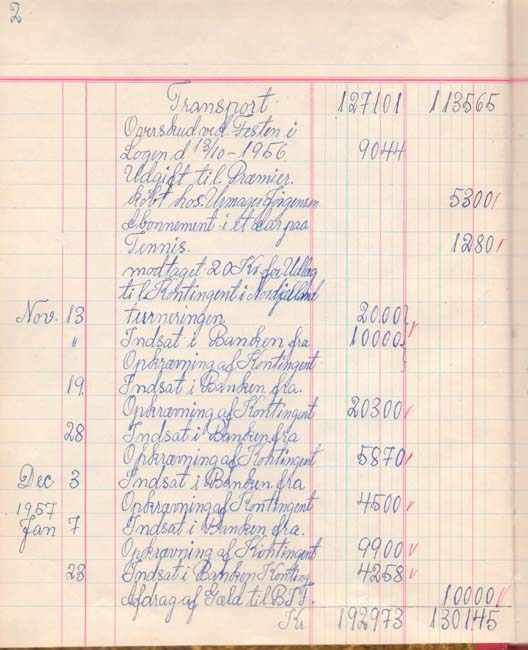 2
Transport 127101 113565
Overskud ved Festen i
Logen d 13/10-1956 9044
Udgift til Præmier.
købt hos Urmager Jørgensen 5300
Abonnement i et aar paa
Tennis. 1280
modtaget 20 Kr for Udlæg
til Kontingent i Nordjylland
Nov. 13 turneringen. 2000
" Indsat i Banken fra 10000
Opkrævning af Kontingent
19. Indsat i Banken fra.
Opkrævning af Kontingent 20300
28 Indsat i Banken fra
Opkrævning af Kontingent 5870
Dec 3 Indsat i Banken fra
Opkrævning af Kontingent 4500
1957
Jan 7 Indsat i Banken fra.
Opkrævning af Kontingent 9900
23 Indsat i Banken Konting. 4258
Afdrag af Gæld til BTF. 10000
Kr 192973 130145